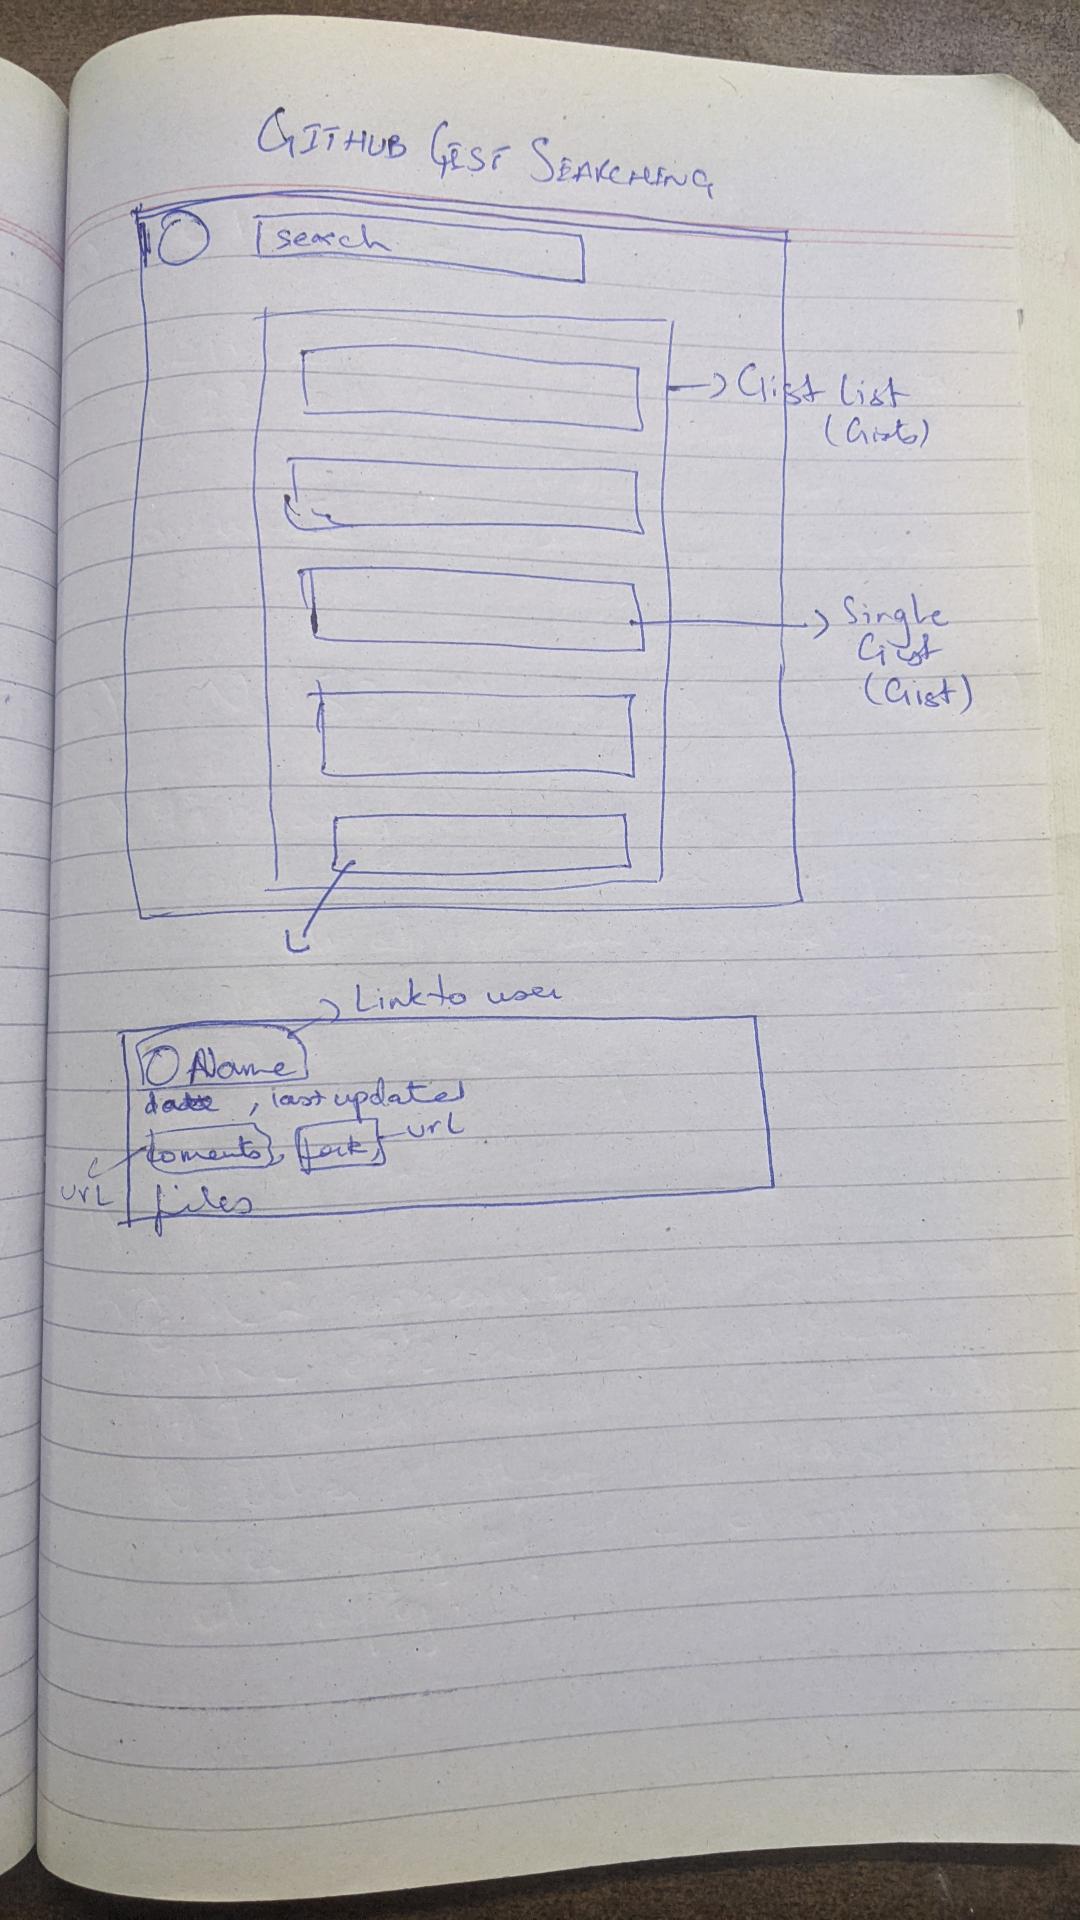 GITHUB GIST SEARCHING
search
→ Gist list
(Gists)
→ Single
Gist
(Gist)
→ Link to user
Name
date, last updated
Coments, fork, url
url
files